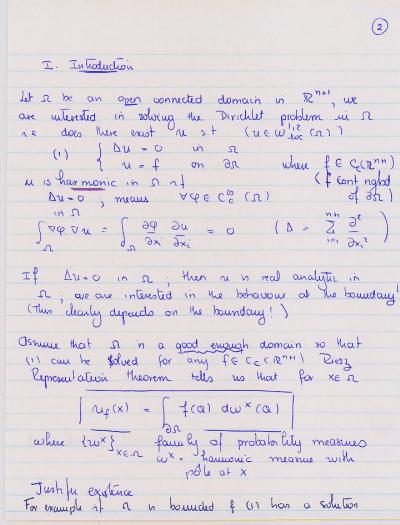 2
I. Introduction
Let Ω be an open connected domain in ℝⁿ⁺¹, we
are interested in solving the Dirichlet problem in Ω
i.e does there exist u s.t (u ∈ W^{1,2}_{loc}(Ω))
(1) { Δu = 0 in Ω
u = f on ∂Ω where f ∈ C_c(ℝⁿ⁺¹)
u is harmonic in Ω if (f cont nghbd
Δu = 0 ; means ∀φ ∈ C_c^∞(Ω) of ∂Ω)
in Ω
∫_Ω ∇φ·∇u = ∫_Ω ∂φ/∂x_i ∂u/∂x_i = 0 (Δ = Σ_{i=1}^{n+1} ∂²/∂x_i²)
If Δu = 0 in Ω ; then u is real analytic in
Ω ; we are interested in the behaviour at the boundary!
(This clearly depends on the boundary!)
Assume that Ω is a good enough domain so that
(1) can be solved for any f ∈ C_c(ℝⁿ⁺¹) Riesz
Representation theorem tells us that for x ∈ Ω
u_f(x) = ∫_{∂Ω} f(Q) dω^x(Q)
where {ω^x}_{x∈Ω} family of probability measures
ω^x = harmonic measure with
pole at x
Justify existence
For example if Ω is bounded & (1) has a solution